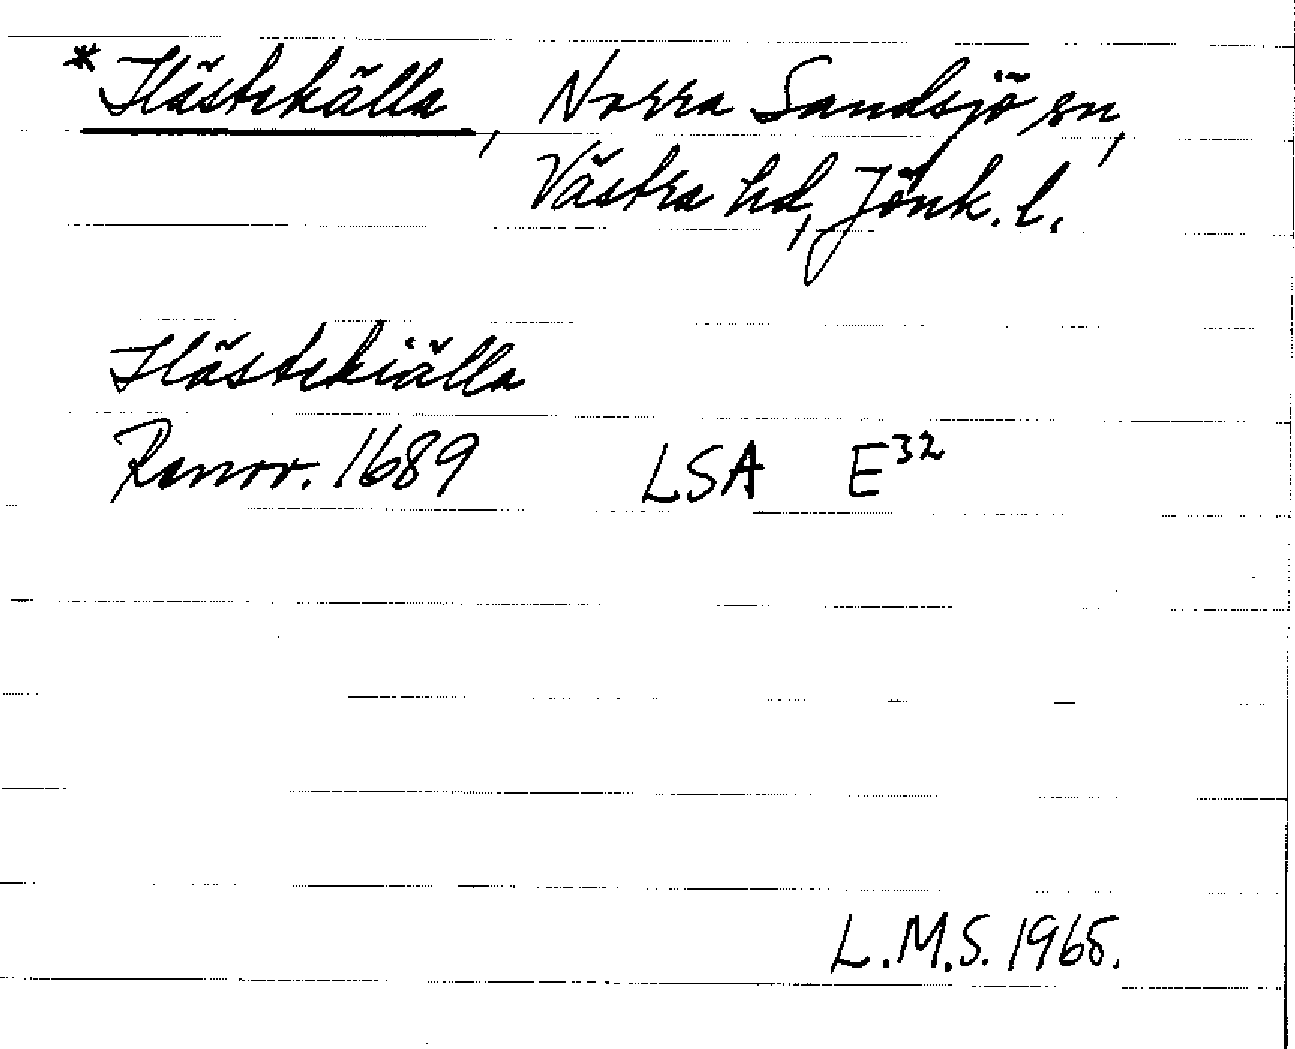 *Hästekälla, Norra Sandsjö sn,
Västra hd, Jönk. l.
Hästekiälla
Rannr. 1689 LSA E32
L.M.S. 1965.